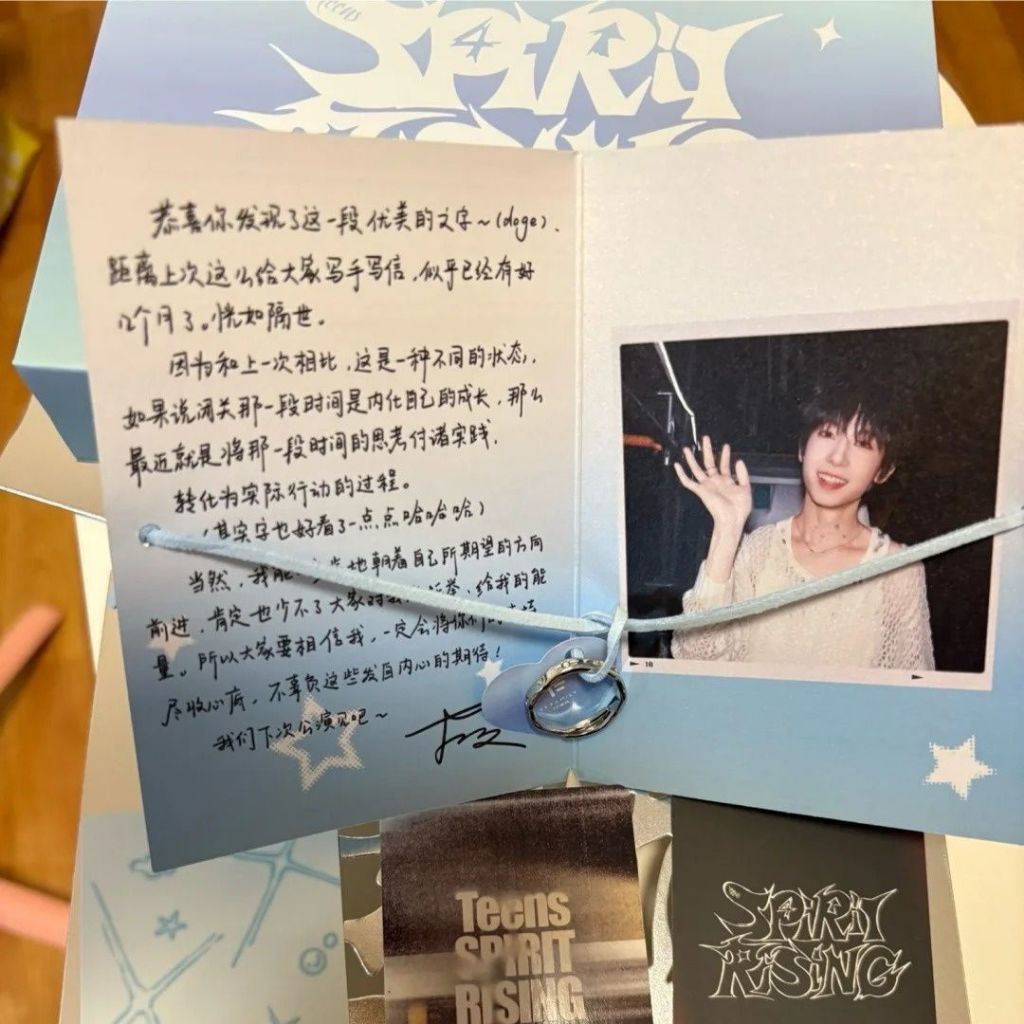 Teens
SPIRIT
恭喜你发现了这一段优美的文字~(doge).
距离上次这么给大家写手写信,似乎已经有好
几个月了。恍如隔世.
因为和上一次相比,这是一种不同的状态,
如果说闯关那一段时间是内化自己的成长,那么
最近就是将那一段时间的思考付诸实践.
转化为实际行动的过程。
(其实字也好看了一点点哈哈哈)
当然,我能 地朝着自己所期望的方向
前进,肯定也少不了大家对我 ,给我的能
量。所以大家要相信我,一定会将你们的
尽收心底,不辜负这些发自内心的期待!
我们下次公演见吧~
18
Teens
SPIRIT
RISING
SPIRIT
RISING